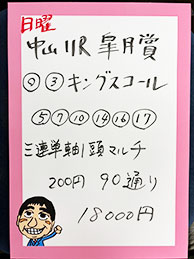 日曜
中山11R 皐月賞
◎ ③ キングスコール
⑤ ⑦ ⑩ ⑭ ⑯ ⑰
三連単軸1頭マルチ
200円 90通り
18000円